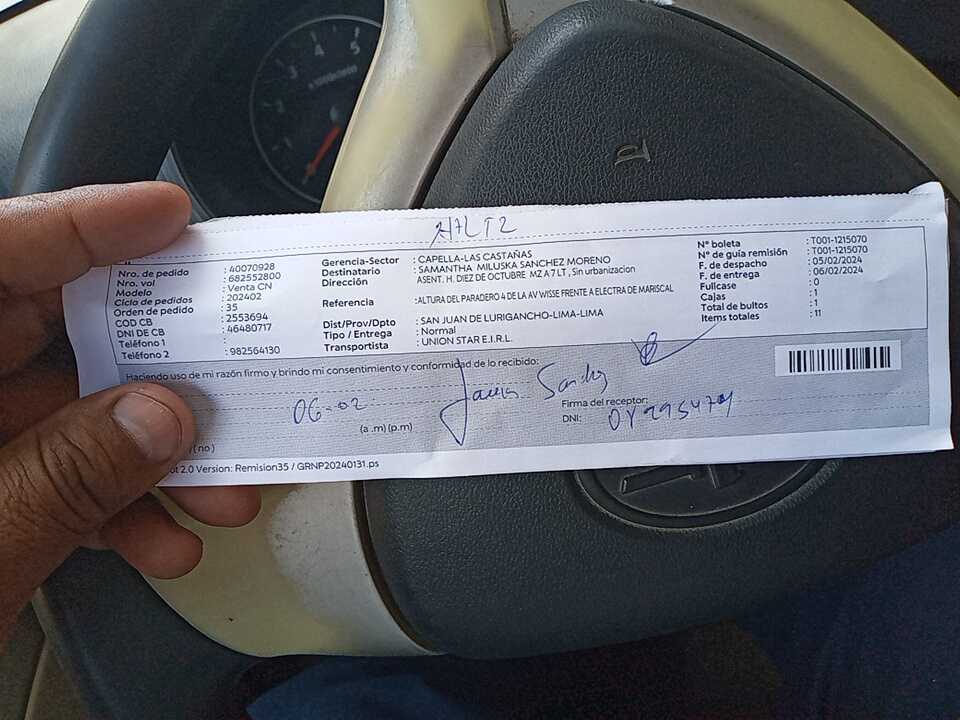 A7LT2
Nro. de pedido : 40070928
Nro. vol : 682552800
Modelo : Venta CN
Ciclo de pedidos : 202402
Orden de pedido : 35
COD CB : 2553694
DNI DE CB : 46480717
Teléfono 1 :
Teléfono 2 : 982564130
Gerencia-Sector : CAPELLA-LAS CASTAÑAS
Destinatario : SAMANTHA MILUSKA SANCHEZ MORENO
Dirección : ASENT. H. DIEZ DE OCTUBRE MZ A 7 LT , Sin urbanizacion
Referencia : ALTURA DEL PARADERO 4 DE LA AV WISSE FRENTE A ELECTRA DE MARISCAL
Dist/Prov/Dpto : SAN JUAN DE LURIGANCHO-LIMA-LIMA
Tipo / Entrega : Normal
Transportista : UNION STAR E.I.R.L.
N° boleta : T001-1215070
N° de guía remisión : T001-1215070
F. de despacho : 05/02/2024
F. de entrega : 06/02/2024
Fullcase : 0
Cajas : 1
Total de bultos : 1
Items totales : 11
Haciendo uso de mi razón firmo y brindo mi consentimiento y conformidad de lo recibido:
06-02
(a .m) (p.m)
Firma del receptor:
DNI:
(no)
2.0 Version: Remision35 / GRNP20240131.ps
4 5